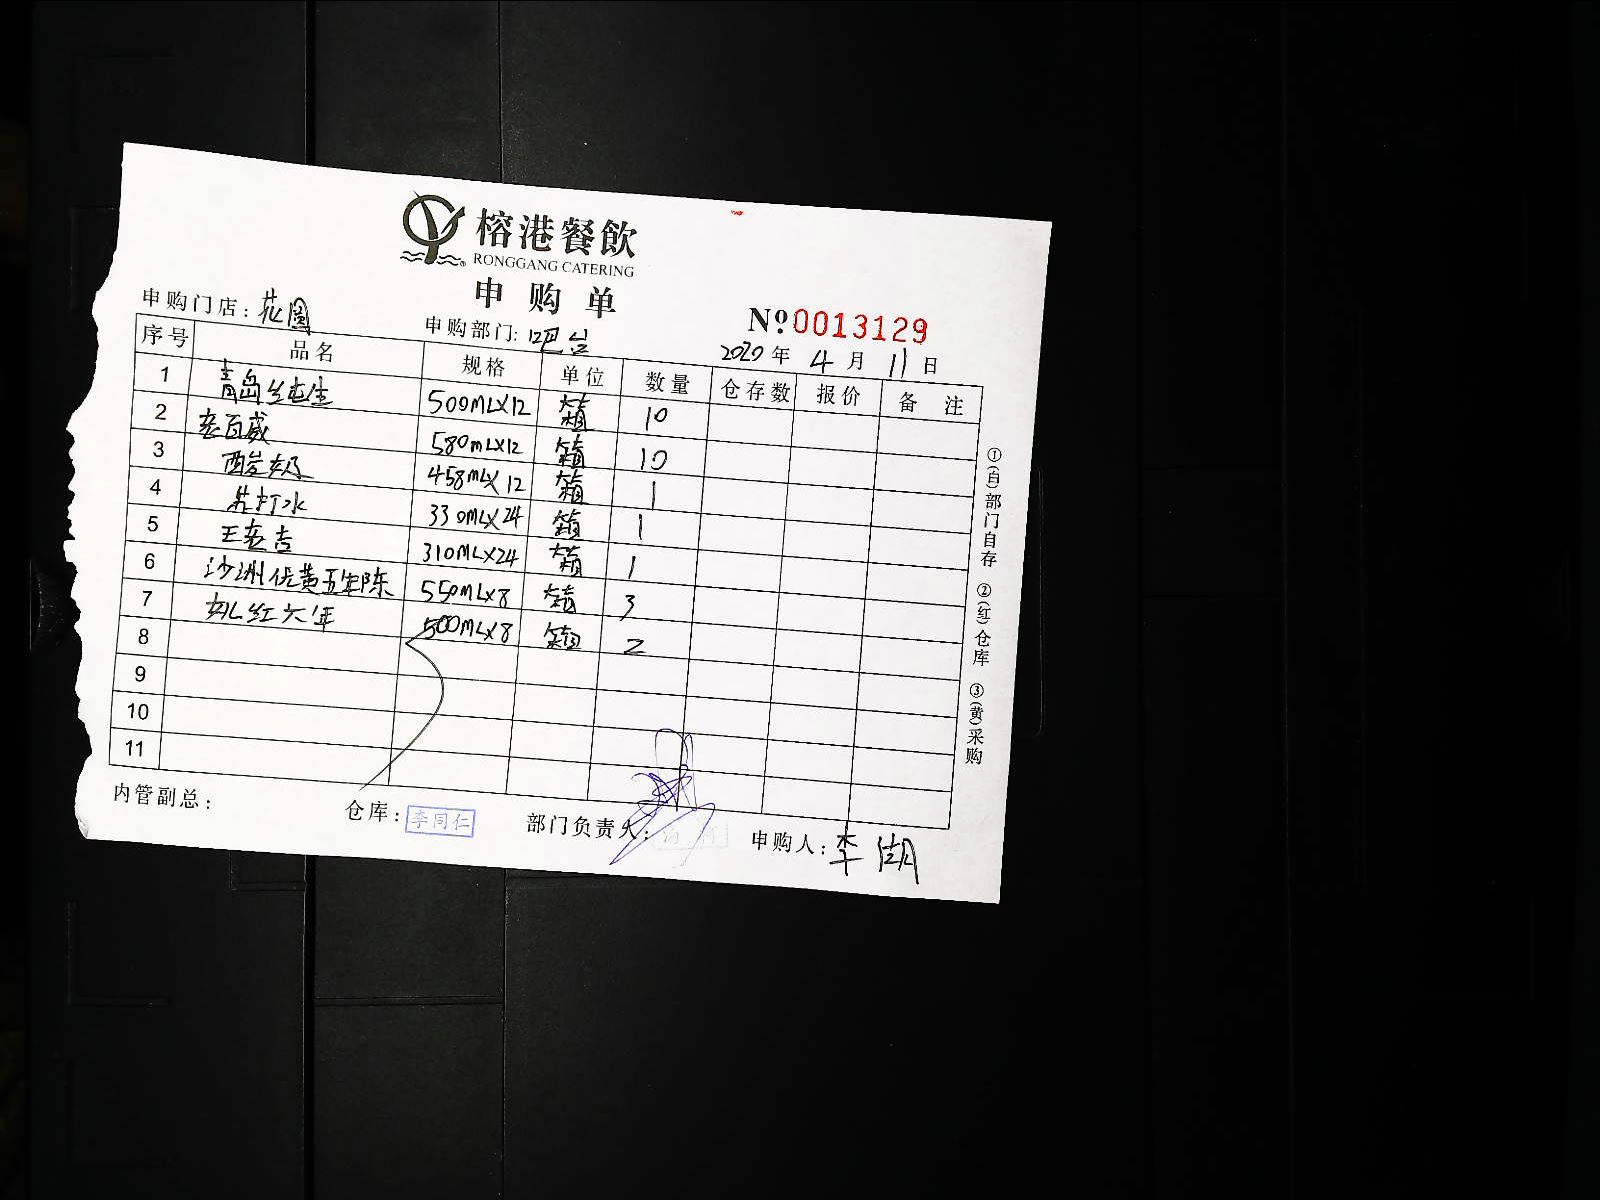 榕港餐飲
RONGGANG CATERING
申购单
№0013129
申购门店:花園 申购部门:吧台 2020年4月11日
序号 品名 规格 单位 数量 仓存数 报价 备注
1 青岛纯生 500MLX12 箱 10
2 老百威 580MLX12 箱 10
3 酸奶 458MLX12 箱 1
4 苏打水 330MLX24 箱 1
5 王老吉 310MLX24 箱 1
6 沙洲优黄五年陈 550MLX8 箱 3
7 女儿红六年 500MLX8 箱 2
8
9
10
11
内管副总: 仓库:李同仁 部门负责人: 申购人:李湖
①(白)部门自存 ②(红)仓库 ③(黄)采购